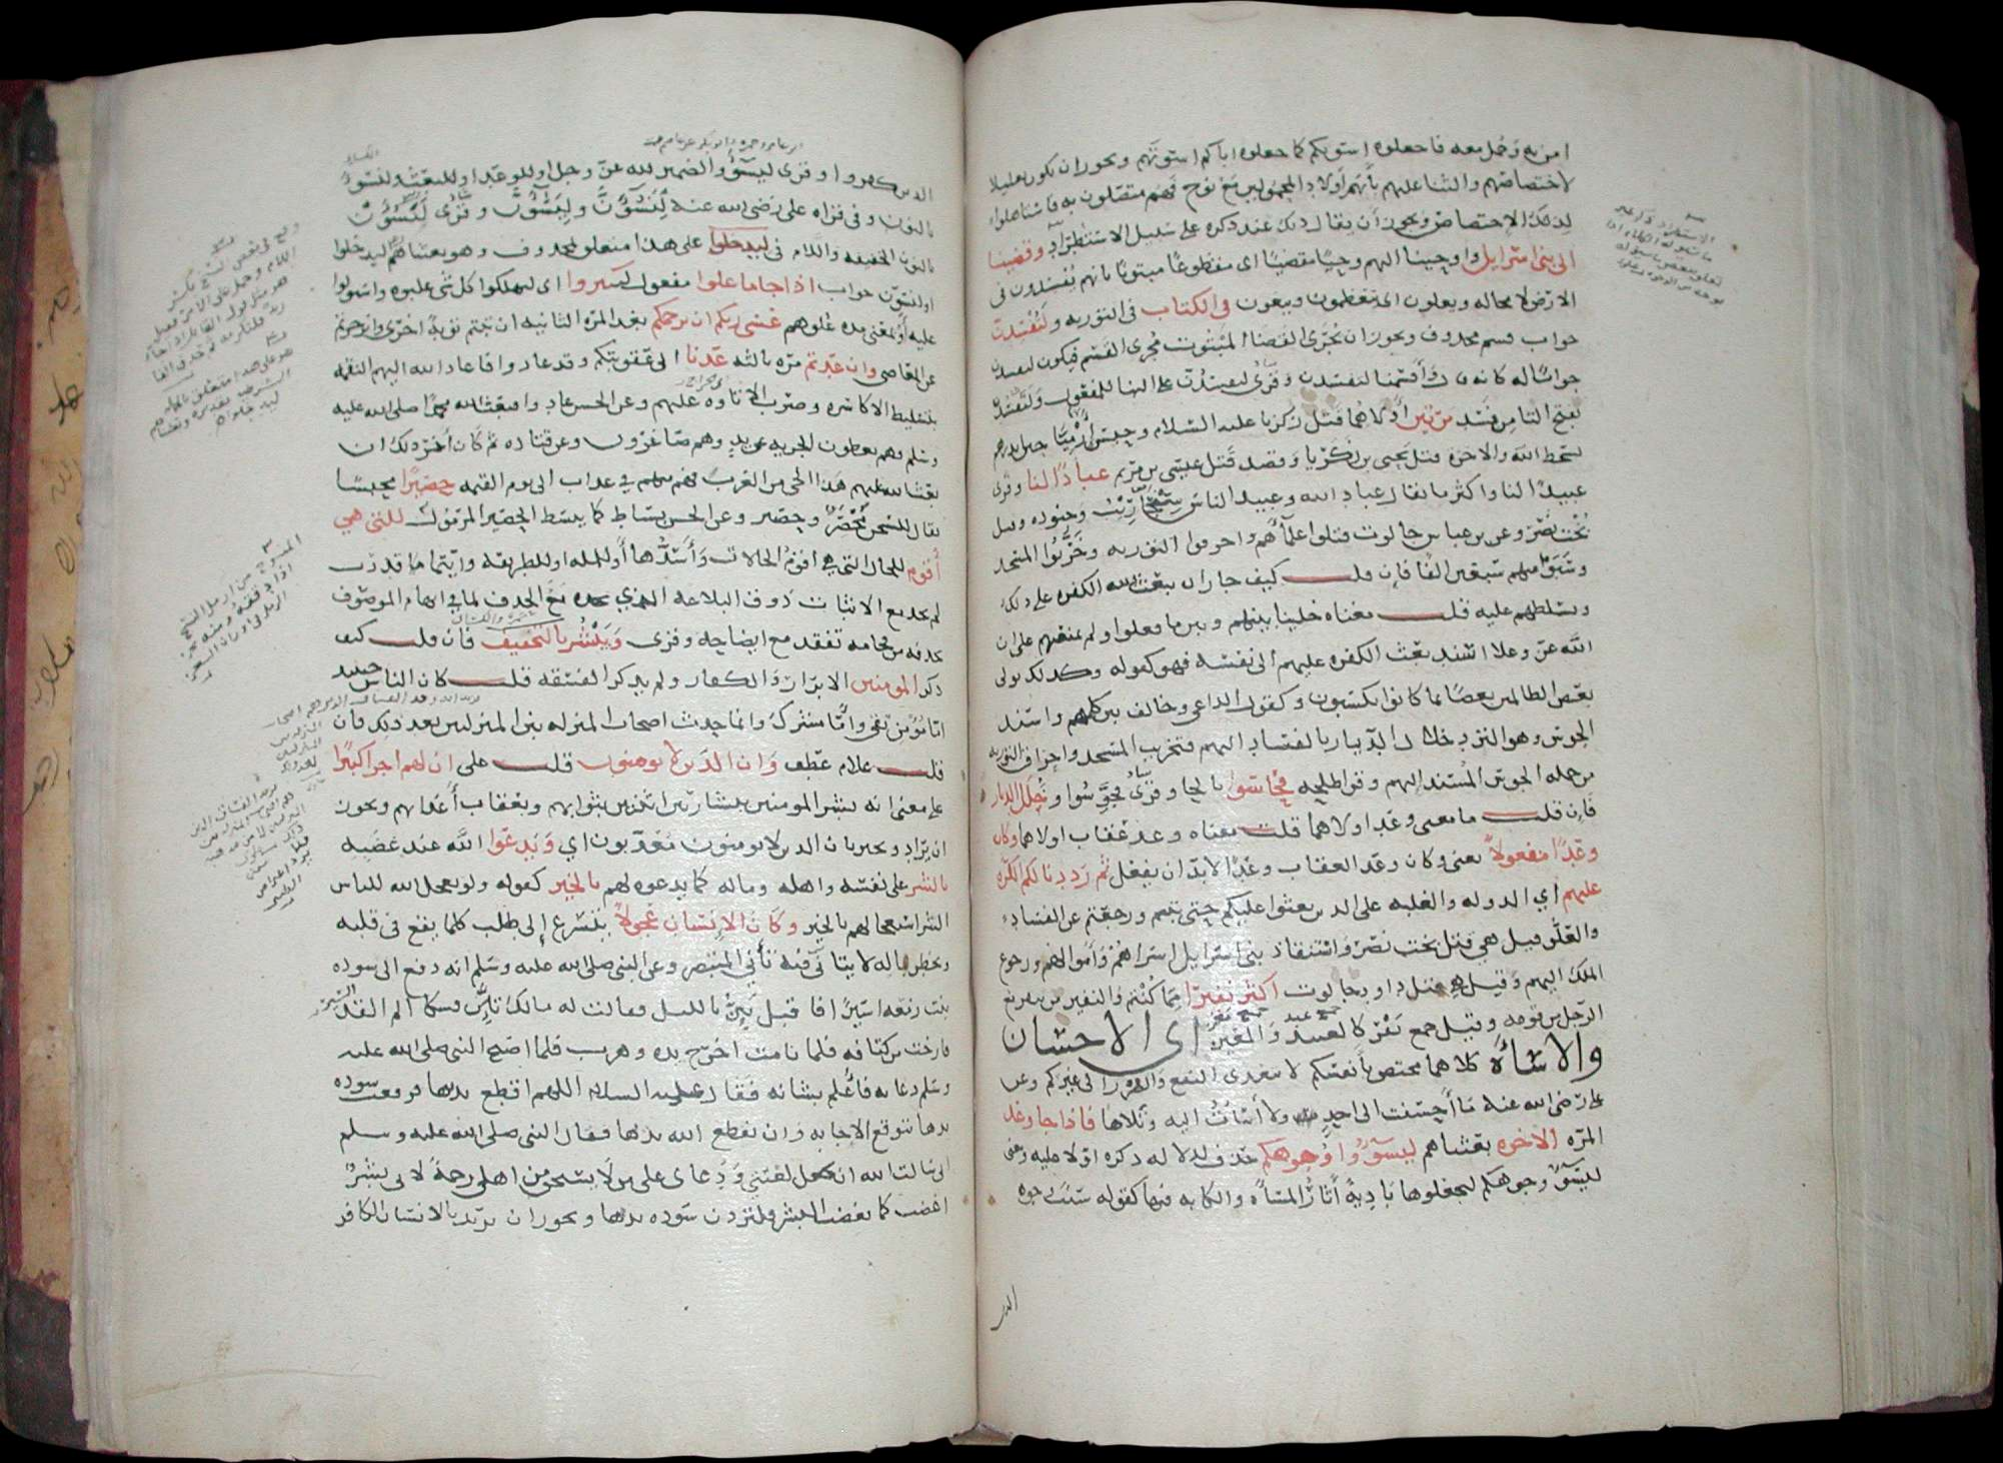 امن به وحمل معه فاجعلوه اسوتكم كما جعلوه اباكم اسوتهم ويجوز ان يكون تعليلا
لاختصاصهم والثنا عليهم بانهم اولاد المحمولين مع نوح فهم متصلون به فاستاهلوا
لذلك الاختصاص ويجوز أن يقال ذلك عند ذكره على سبيل الاستطراد وقضينا
الى بنى اسرائيل واوحينا اليهم وحيًا مقضيًا اى مقطوعًا مبتوتًا بانهم يفسدون فى
الارض لا محاله ويعلون اى يتعظمون ويبغون فى الكتاب فى التوريه ولتفسدن
جواب قسم محذوف ويجوز ان يجرى القضا المبتوت مجرى القسم فيكون لتفسدن
جوابًا له كانه قال وأقسمنا لتفسدن وقرى لتفسدن على البنا للمفعول ولتفسدن
بفتح التا من فسد مرتين أولاهما قتل زكريا عليه السلام وحبس أرميا حين انذرهم
سخط الله والاخره قتل يحيى بن زكريا وقصد قتل عيسى بن مريم عبادًا لنا وقرى
عبيدًا لنا واكثر ما يقال عباد الله وعبيد الناس سنحاريب وجنوده وقيل
بخت نصر وعن بن عباس جالوت قتلوا علماهم واحرقوا التوريه وخربوا المسجد
وسبوا منهم سبعين الفًا فإن قلت كيف جاز ان يبعث الله الكفره على ذلك
ويسلطهم عليه قلت معناه خلينا بينهم وبين ما فعلوا ولم نمنعهم على ان
الله عز وعلا اسند بعث الكفره عليهم الى نفسه فهو كقوله وكذلك نولى
بعض الظالمين بعضًا بما كانوا يكسبون وكقول الداعى وخالف بين كلمهم واسند
الجوس وهو التردد خلال الديار بالفساد اليهم فتخريب المسجد واحراق التوريه
من جمله الجوس المسند اليهم وقرا طلحه فحاسوا بالحا وقرى فجوسوا وخلل الديار
فإن قلت ما معنى وعد اولاهما قلت معناه وعد عقاب اولاهما وكان
وعدًا مفعولًا يعنى وكان وعد العقاب وعدًا لابد ان يفعل ثم رددنا لكم الكره
عليهم اي الدوله والغلبه على الذين بعثوا عليكم حتى تبتم ورجعتم عن الفساد
والعلو قيل هى قتل بخت نصر واستنقاذ بنى اسرايل اسراهم واموالهم ورجوع
الملك اليهم وقيل هى قتل داود جالوت اكثر نفيرًا مما كنتم والنفير من ينفر مع
الرجل من قومه وقيل جمع نفر كالعبيد والمعيز اى الاحسان
والاساه كلاهما مختص بأنفسكم لا يتعدى النفع والضرر الى غيركم وعن
على رضى الله عنه ما أحسنت الى احد ولا أسأت اليه وتلاها فاذا جا وعد
المره الاخره بعثناهم ليسوؤوا وجوهكم حذف لدلاله ذكره اولا عليه ومعنى
ليسؤوا وجوهكم ليجعلوها بادية أثار المساه والكابه فيها كقوله سيئت وجوه
الذين
الذين كفروا وقرى ليسوء والضمير لله عز وجل او للوعد او للبعث ولنسوء
بالنون وفى قراه على رضى الله عنه لنسؤن وليسؤن وقرى لنسوءن
بالنون الخفيفه واللام فى ليدخلوا على هذا متعلق بمحذوف وهو بعثناهم ليدخلوا
ولنسوءن جواب اذا جا ما علوا مفعول ليتبروا اى ليهلكوا كل شى غلبوه واستولوا
عليه أو بمعنى مده علوهم عسى ربكم ان يرحمكم بعد المره الثانيه ان تبتم توبة اخرى وانزجرتم
عن المعاصى وان عدتم مره ثالثه عدنا الى عقوبتكم وقد عادوا فاعاد الله اليهم النقمه
بتسليط الاكاسره وضرب الاتاوه عليهم وعن الحسن عادوا فبعث الله محمدًا صلى الله عليه
وسلم فهم يعطون الجزيه عن يد وهم صاغرون وعن قتاده ثم كان أخر ذلك ان
بعث الله عليهم هذا الحى من العرب فهم منهم فى عذاب الى يوم القيمه حصيرًا محبسًا
يقال للسجن محصر وحصير وعن الحسن بساط كما يبسط الحصير المرمول للتى هى
أقوم للحال التى هى اقوم الحالات وأسدها أو للمله او للطريقه وايتما ما قدرت
لم تجد مع الاثبات ذوق البلاغه الذي تجده مع الحذف لما في ابهام الموصوف
بحذفه من فخامه تفقد مع ايضاحه وقرى ويبشر بالتخفيف فان قلت كيف
ذكر المومنين الابرار والكفار ولم يذكر الفسقه قلت كان الناس حينيذ
اما مومن تقى واما مشرك وانما حدث اصحاب المنزله بين المنزلتين بعد ذلك فان
قلت علام عطف وان الذين لا يومنون قلت على ان لهم اجرا كبيرًا
على معنى انه بشر المومنين ببشارتين اثنتين بثوابهم وبعقاب أعدايهم ويجوز
ان يراد ويخبر بان الذين لا يومنون معذبون اي ويدعوا الله عند غضبه
بالشر على نفسه واهله وماله كما يدعوه لهم بالخير كقوله ولو يعجل الله للناس
الشر استعجالهم بالخير وكان الإنسان عجولًا يتسرع إلى طلب كلما يقع فى قلبه
ويخطر بباله لا يتانى فيه تأني المتبصر وعن النبى صلى الله عليه وسلم انه دفع الى سوده
بنت زمعه اسيرًا فاقبل يئن بالليل فقالت له مالك تئن فشكا الم القد
فارخت من كتافه فلما نامت اخرج يده وهرب فلما اصبح النبى صلى الله عليه
وسلم دعا به فأعلم بشانه فقال عليه السلام اللهم اقطع يديها فرفعت سوده
يدها تتوقع الاجابه وان يقطع الله يدها فقال النبى صلى الله عليه وسلم
انى سالت الله ان يجعل لعنتى ودعاى على من لا يستحق من اهلى رحمة لانى بشر
اغضب كما يغضب البشر فلتردد سوده يديها ويجوز ان يريد بالانسان الكافر